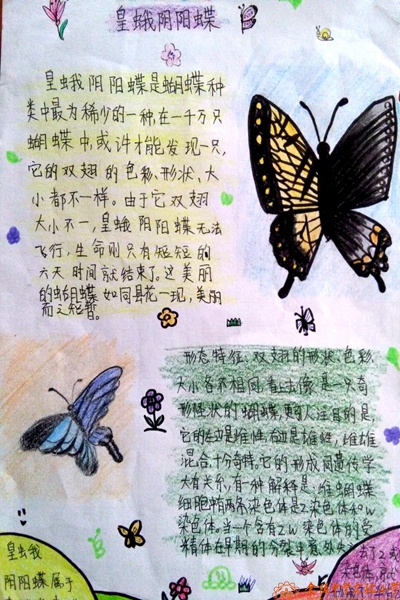 皇蛾阴阳蝶
皇虫我阴阳蝶是蝴蝶种
类中最为稀少的一种,在一千万只
蝴蝶中,或许才能发现一只,
它的双翅的色彩,形状、大
小都不一样。由于它双翅
大小不一,皇蛾阴阳蝶无法
飞行,生命则只有短短的
六天时间就结束了。这美丽
的蝴蝶如同昙花一现,美丽
而又短暂。
形态特征:双翅的形状、色彩、
大小各不相同,看上去像是一只奇
形怪状的蝴蝶,更引人注目的是,
它的左边是雌性,右边是雄性,雌雄
混合,十分奇特。它的形成
大有关系,有一种解释是,雌蝴蝶
细胞带两条染色体是Z染色体和W
染色体。当一个含有ZW染色体的受
精体在早期的分裂中意外失
去了Z
染色体
皇虫我
阴阳蝶属于